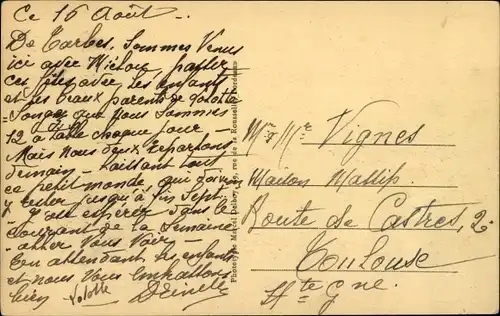 Ce 16 Août -.
De Tarbes, Sommes Venus
ici avec passer
ces fêtes avec les enfants
et les beaux parents de Lolotte
Songez que nous sommes
12 à table chaque jour -
Mais nous deux repartons
demain - laissant tout
ce petit monde qui doivent
y rester jusqu'à fin Sept.
J'espère dans le
courant de la semaine
aller Vous Voir -
En attendant les enfants
et nous Vous embrassons
bien Lolotte
Phototypie Marcel Delboy, rue de la Rousselle, Bordeaux
Mme & Mr Vignes
Maison Mattip.
Route de Castres, 2.
Toulouse
Hte Gne.